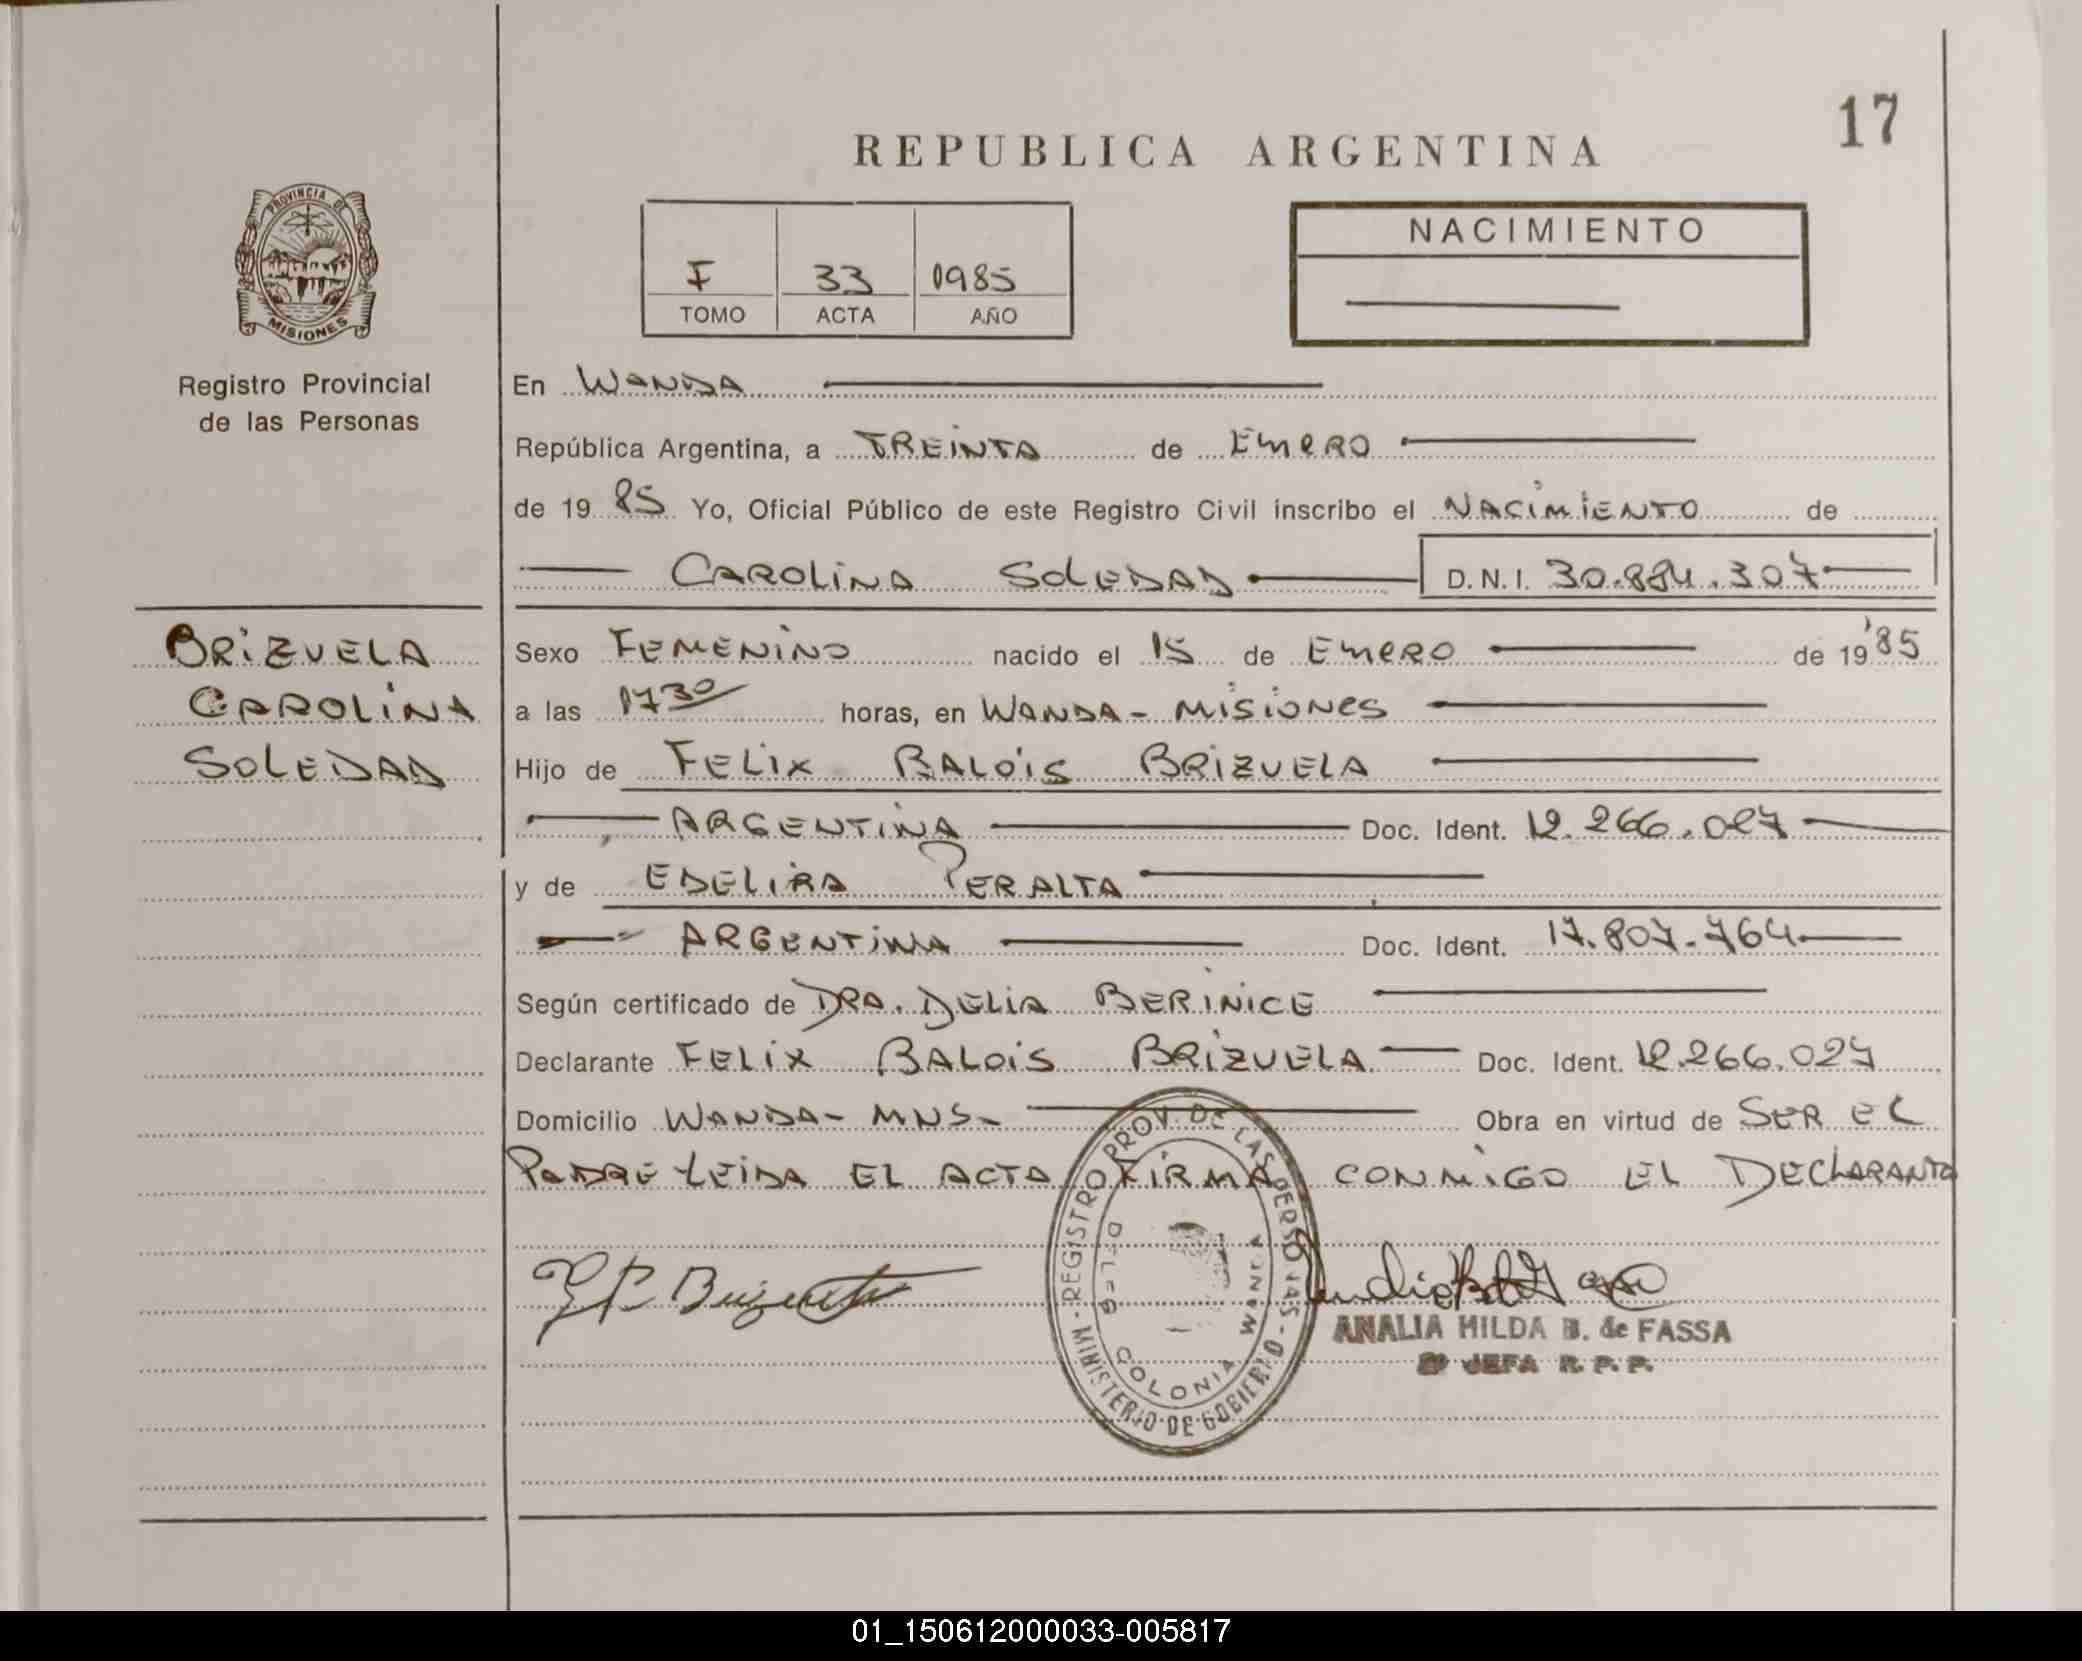 17
REPUBLICA ARGENTINA
PROVINCIA DE
MISIONES
Registro Provincial
de las Personas
I 33 1985
TOMO ACTA AÑO
NACIMIENTO
En WANDA
República Argentina, a TREINTA de ENERO
de 1985 Yo, Oficial Público de este Registro Civil inscribo el NACIMIENTO de
CAROLINA SOLEDAD D.N.I. 30.884.307
BRIZUELA
CAROLINA
SOLEDAD
Sexo FEMENINO nacido el 15 de ENERO de 19 85
a las 17 30 horas, en WANDA - MISIONES
Hijo de FELIX BALOIS BRIZUELA
ARGENTINA Doc. Ident. 12.266.027
y de EDELIRA PERALTA
ARGENTINA Doc. Ident. 17.807.764
Según certificado de DRA. DELIA BERINICE
Declarante FELIX BALOIS BRIZUELA Doc. Ident. 12.266.027
Domicilio WANDA - MNS - Obra en virtud de SER EL
PADRE LEIDA EL ACTA FIRMA CONMIGO EL DECLARANTE
REGISTRO PROV. DE LAS PERSONAS - MINISTERIO DE GOBIERNO
DELEG COLONIA WANDA
Brizuela
ANALIA HILDA B. de FASSA
JEFA R. P. P.
01_150612000033-005817